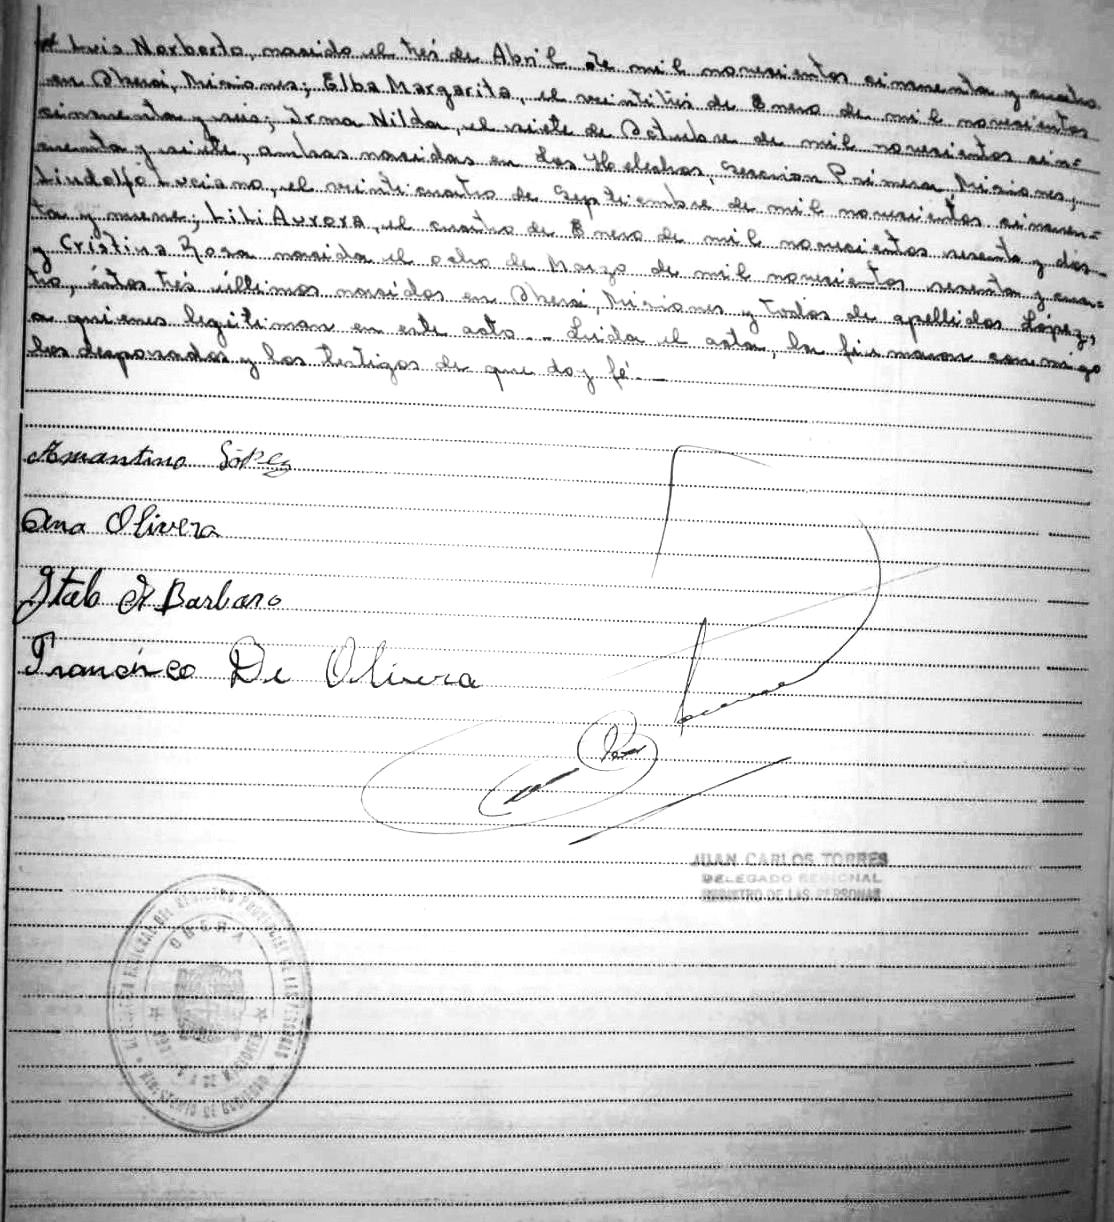 Luis Norberto, nacido el tres de Abril de mil novecientos cincuenta y cuatro
en Oberá, Misiones; Elba Margarita, el veintitrés de Enero de mil novecientos
cincuenta y seis; Irma Nilda, el siete de Octubre de mil novecientos cin-
cuenta y siete, ambas nacidas en Los Helechos, Sección Primera, Misiones;
Lindolfo Luciano, el veinticuatro de Septiembre de mil novecientos cincuen-
ta y nueve; Lili Aurora, el cuatro de Enero de mil novecientos sesenta y dos
y Cristina Rosa nacida el ocho de Marzo de mil novecientos sesenta y cua-
tro, éstos trés últimos nacidos en Oberá, Misiones y todos de apellidos López,
a quienes legitiman en este acto.- Leida el acta, la firmaron conmigo
los desposados y los testigos de que doy fé.-
Amantino López
Ana Olivera
Barbaro
Francisco De Olivera
JUAN CARLOS TORRES
DELEGADO REGIONAL
REGISTRO DE LAS PERSONAS
OBERA
MINISTERIO DE GOBIERNO